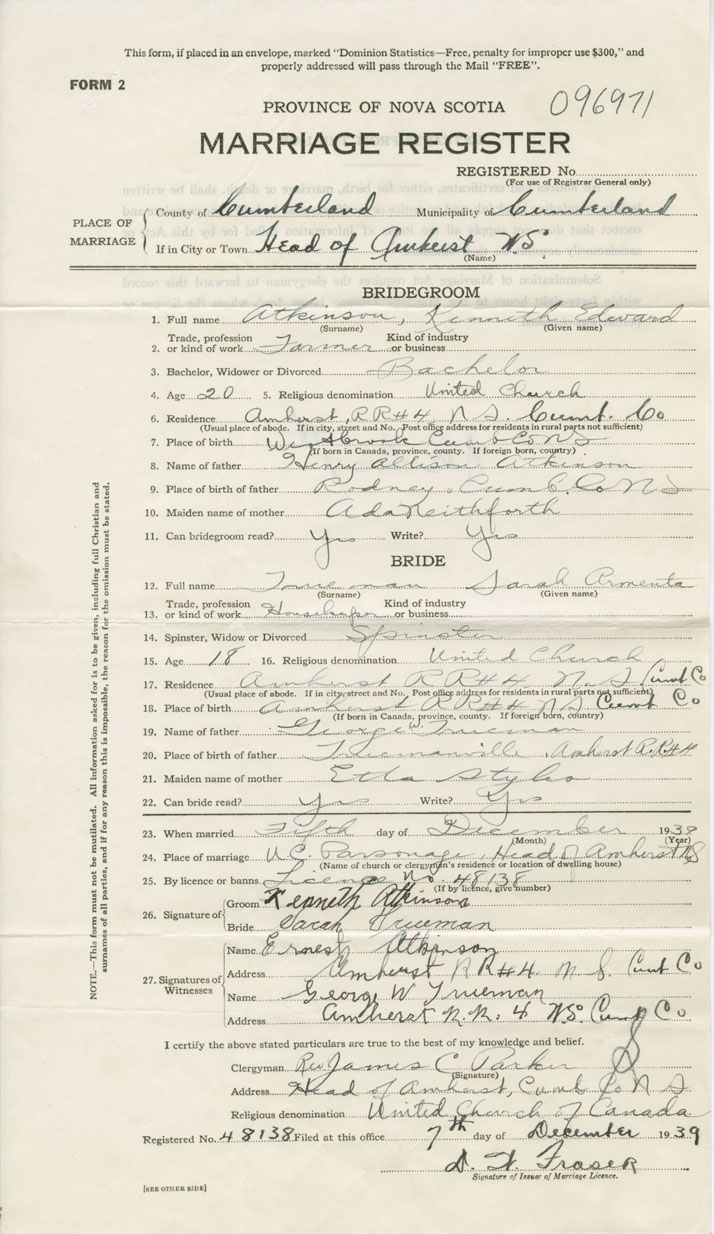 This form, if placed in an envelope, marked "Dominion Statistics—Free, penalty for improper use $300," and
properly addressed will pass through the Mail "FREE".
FORM 2
PROVINCE OF NOVA SCOTIA 096971
MARRIAGE REGISTER
REGISTERED No.
(For use of Registrar General only)
PLACE OF MARRIAGE
County of Cumberland Municipality of Cumberland
If in City or Town Head of Amherst NS
(Name)
BRIDEGROOM
1. Full name Atkinson, Kenneth Edward
(Surname) (Given name)
Trade, profession Kind of industry
2. or kind of work Farmer or business
3. Bachelor, Widower or Divorced Bachelor
4. Age 20 5. Religious denomination United Church
6. Residence Amherst, R R #4, N S. Cumb. Co
(Usual place of abode. If in city, street and No. Post office address for residents in rural parts not sufficient)
7. Place of birth Westbrook Cumb Co NS
(If born in Canada, province, county. If foreign born, country)
8. Name of father Henry Allison Atkinson
9. Place of birth of father Rodney, Cumb. Co N S
10. Maiden name of mother Ada
11. Can bridegroom read? Yes Write? Yes
BRIDE
12. Full name Trueman Sarah Armenta
(Surname) (Given name)
Trade, profession Kind of industry
13. or kind of work Housekeeper or business
14. Spinster, Widow or Divorced Spinster
15. Age 18 16. Religious denomination United Church
17. Residence Amherst R R #4 N. S Cumb Co
(Usual place of abode. If in city, street and No. Post office address for residents in rural parts not sufficient)
18. Place of birth Amherst R R #4 N S Cumb Co
(If born in Canada, province, county. If foreign born, country)
19. Name of father George W Trueman
20. Place of birth of father Truemanville, Amherst R.R#4
21. Maiden name of mother Etta Styles
22. Can bride read? Yes Write? Yes
23. When married Fifth day of December 1939
(Month) (Year)
24. Place of marriage U.C. Parsonage, Head of Amherst NS
(Name of church or clergyman's residence or location of dwelling house)
25. By licence or banns Licence No 48138
(If by licence, give number)
26. Signature of
Groom Kenneth Atkinson
Bride Sarah Trueman
27. Signatures of Witnesses
Name Ernest Atkinson
Address Amherst R R #4 N. S. Cumb Co
Name George W Trueman
Address Amherst R.R. 4 NS. Cumb Co
I certify the above stated particulars are true to the best of my knowledge and belief.
Clergyman Rev James C Parker
(Signature)
Address Head of Amherst, Cumb Co N S
Religious denomination United Church of Canada
Registered No. 48138 Filed at this office 7th day of December 1939
Fraser
Signature of Issuer of Marriage Licence.
[SEE OTHER SIDE]
NOTE.—This form must not be mutilated. All information asked for is to be given, including full Christian and
surnames of all parties, and if for any reason this is impossible, the reason for the omission must be stated.